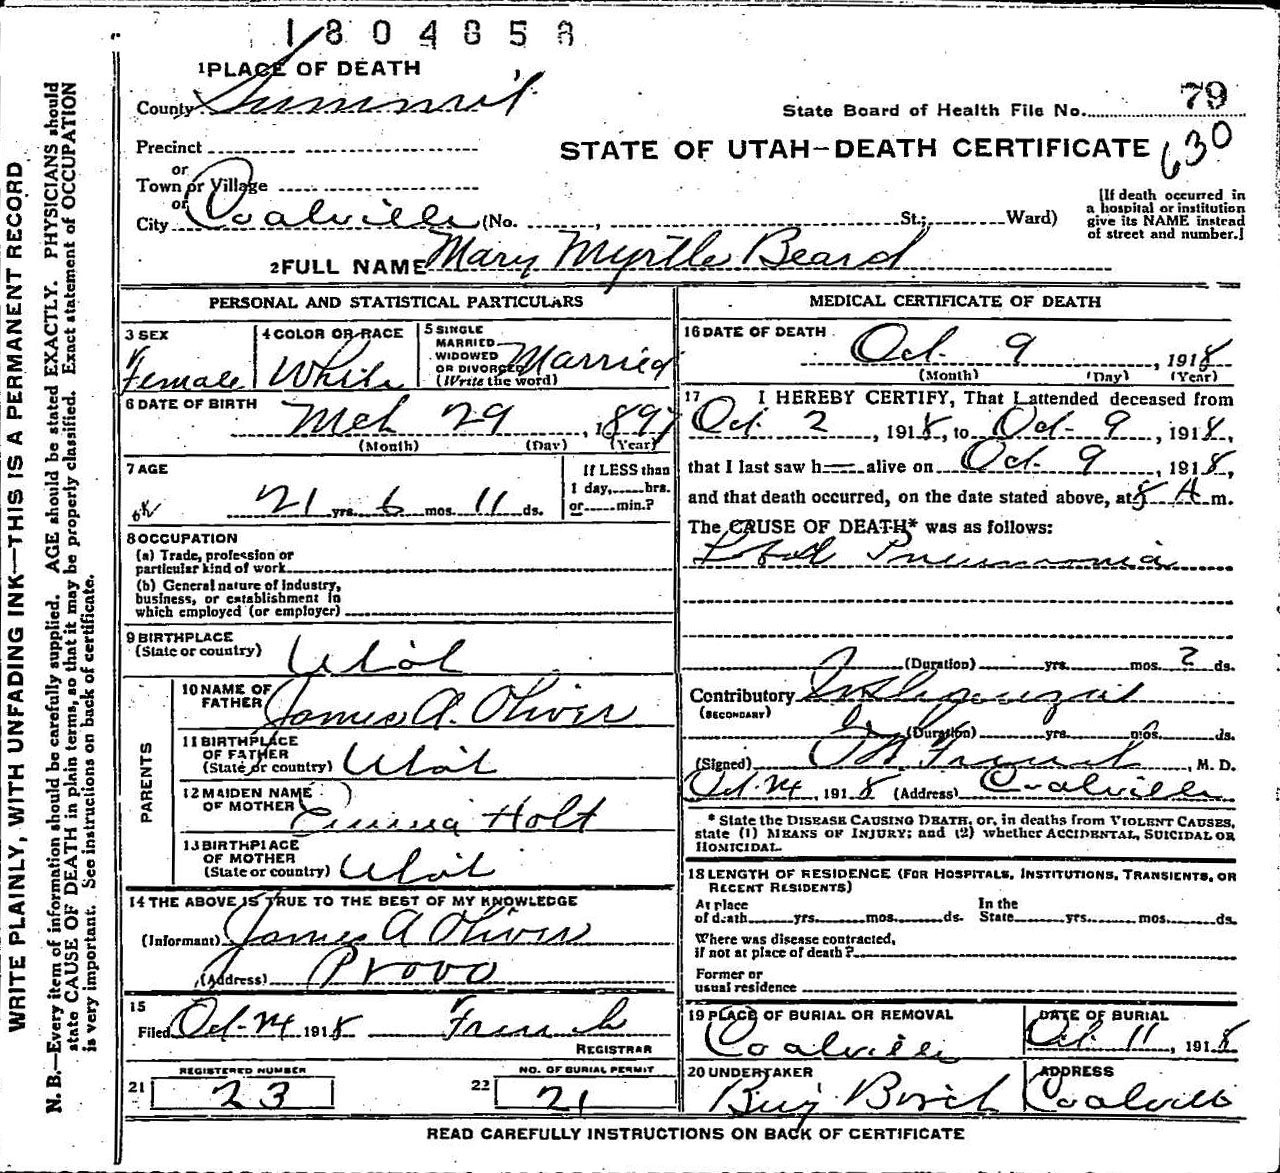 1804858
1 PLACE OF DEATH
County Summit
State Board of Health File No. 79
Precinct
STATE OF UTAH—DEATH CERTIFICATE 630
or
Town or Village
or
City Coalville (No. , St.; Ward)
[If death occurred in
a hospital or institution
give its NAME instead
of street and number.]
2 FULL NAME Mary Myrtle Beard
PERSONAL AND STATISTICAL PARTICULARS
3 SEX
Female
4 COLOR OR RACE
White
5 SINGLE
MARRIED
WIDOWED
OR DIVORCED
(Write the word)
Married
6 DATE OF BIRTH
Mch 29, 1897
(Month) (Day) (Year)
7 AGE
21 yrs. 6 mos. 11 ds.
If LESS than
1 day, hrs.
or min.?
8 OCCUPATION
(a) Trade, profession or
particular kind of work
(b) General nature of industry,
business, or establishment in
which employed (or employer)
9 BIRTHPLACE
(State or country) Utah
PARENTS
10 NAME OF
FATHER James A. Oliver
11 BIRTHPLACE
OF FATHER
(State or country) Utah
12 MAIDEN NAME
OF MOTHER Emma Holt
13 BIRTHPLACE
OF MOTHER
(State or country) Utah
14 THE ABOVE IS TRUE TO THE BEST OF MY KNOWLEDGE
(Informant) James A Oliver
(Address) Provo
15
Filed Oct-14 1918 French
REGISTRAR
REGISTERED NUMBER
21 23
NO. OF BURIAL PERMIT
22 21
MEDICAL CERTIFICATE OF DEATH
16 DATE OF DEATH
Oct. 9, 1918
(Month) (Day) (Year)
17 I HEREBY CERTIFY, That I attended deceased from
Oct. 2, 1918, to Oct- 9, 1918,
that I last saw h alive on Oct- 9, 1918,
and that death occurred, on the date stated above, at 8 A m.
The CAUSE OF DEATH* was as follows:
Pneumonia
(Duration) yrs. mos. 2 ds.
Contributory
(SECONDARY)
(Duration) yrs. mos. ds.
(Signed) French, M. D.
Oct. 14, 1918 (Address) Coalville
* State the DISEASE CAUSING DEATH, or, in deaths from VIOLENT CAUSES,
state (1) MEANS OF INJURY; and (2) whether ACCIDENTAL, SUICIDAL OR
HOMICIDAL.
18 LENGTH OF RESIDENCE (FOR HOSPITALS, INSTITUTIONS, TRANSIENTS, OR
RECENT RESIDENTS)
At place
of death yrs. mos. ds.
In the
State yrs. mos. ds.
Where was disease contracted,
if not at place of death?
Former or
usual residence
19 PLACE OF BURIAL OR REMOVAL
Coalville
DATE OF BURIAL
Oct. 11, 1918
20 UNDERTAKER
Birch
ADDRESS
Coalville
READ CAREFULLY INSTRUCTIONS ON BACK OF CERTIFICATE
WRITE PLAINLY, WITH UNFADING INK—THIS IS A PERMANENT RECORD
N. B.—Every item of information should be carefully supplied. AGE should be stated EXACTLY. PHYSICIANS should
state CAUSE OF DEATH in plain terms, so that it may be properly classified. Exact statement of OCCUPATION
is very important. See instructions on back of certificate.